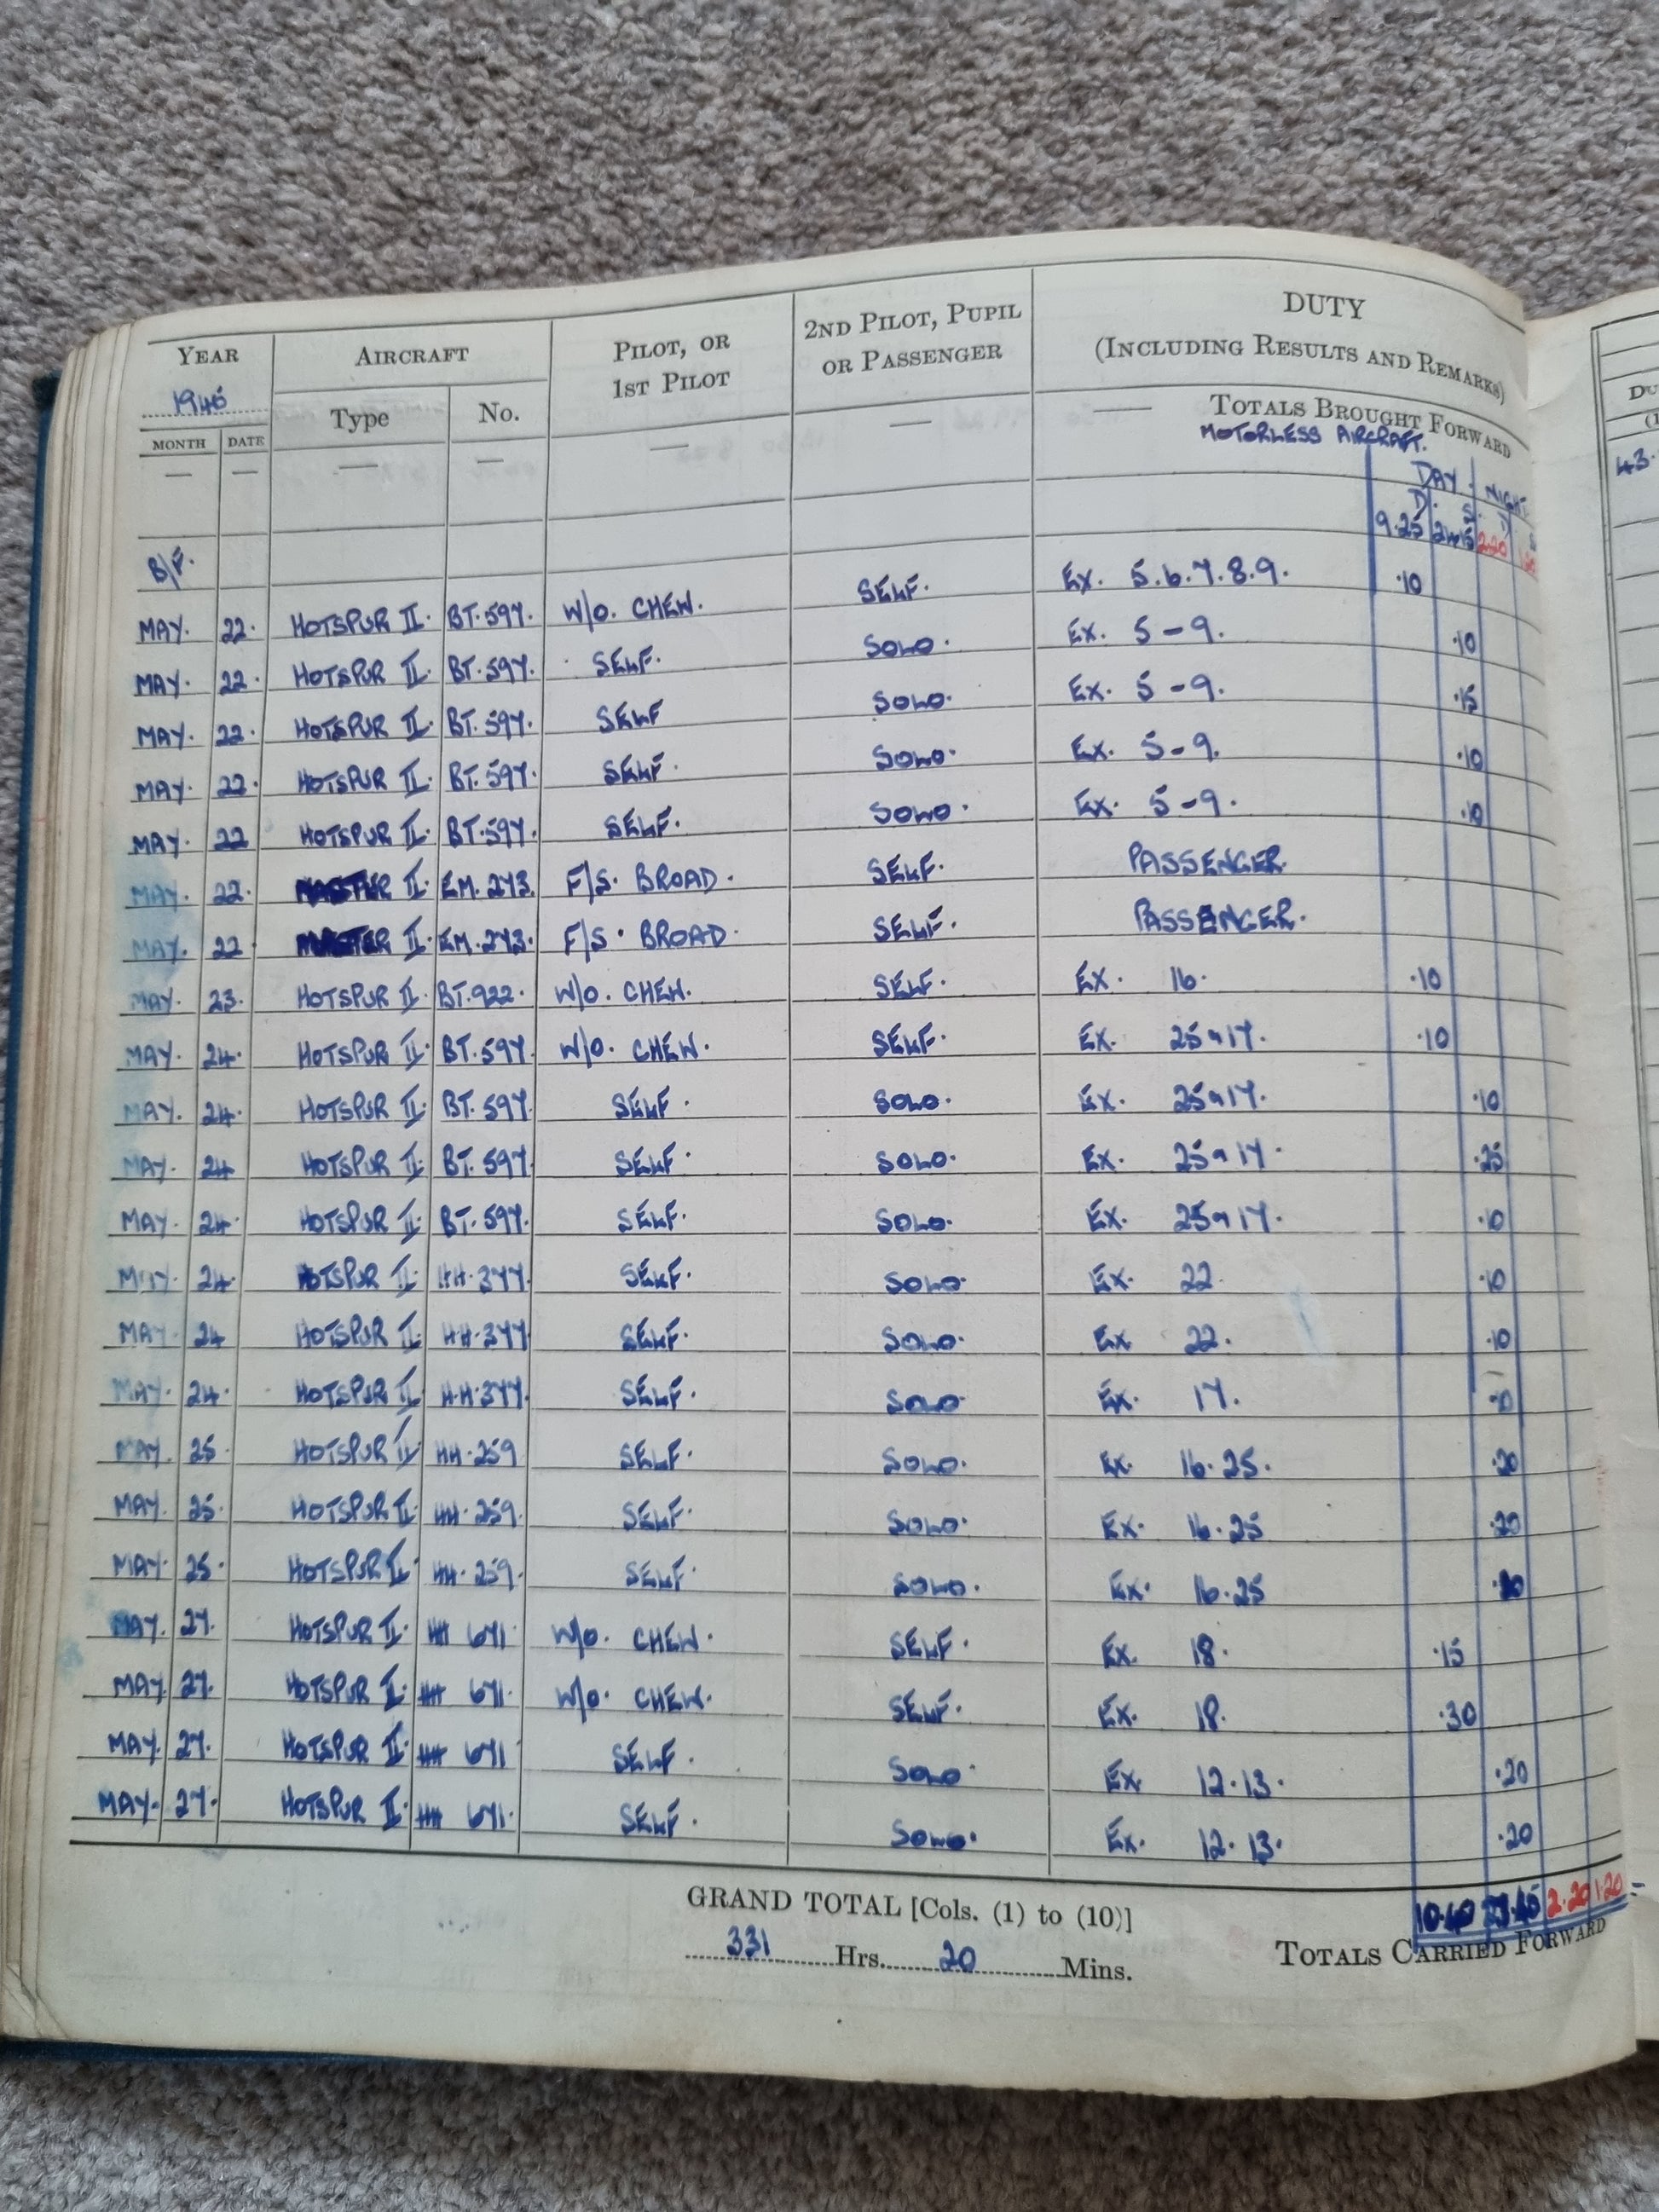 YEAR AIRCRAFT PILOT, OR 1ST PILOT 2ND PILOT, PUPIL OR PASSENGER DUTY (INCLUDING RESULTS AND REMARKS)
1946 Type No.
MONTH DATE
TOTALS BROUGHT FORWARD
MOTORLESS AIRCRAFT.
DAY. NIGHT.
D. S. D
B/F. 9.25 2.20
MAY. 22. HOTSPUR II. BT.597. W/O. CHEW. SELF. EX. 5.6.7.8.9. .10
MAY. 22. HOTSPUR II. BT.597. SELF. SOLO. EX. 5-9. .10
MAY. 22. HOTSPUR II. BT.597. SELF SOLO. EX. 5-9. .15
MAY. 22. HOTSPUR II. BT.597. SELF. SOLO. EX. 5-9. .10
MAY. 22 HOTSPUR II. BT.597. SELF. SOLO. EX. 5-9. .10
MAY. 22. MASTER II. EM.273. F/S. BROAD. SELF. PASSENGER.
MAY. 22 MASTER II. EM.273. F/S. BROAD. SELF. PASSENGER.
MAY. 23. HOTSPUR II. BT.922. W/O. CHEW. SELF. EX. 16. .10
MAY. 24. HOTSPUR II. BT.597 W/O. CHEW. SELF. EX. 25a17. .10
MAY. 24. HOTSPUR II. BT.597. SELF. SOLO. EX. 25a17. .10
MAY. 24 HOTSPUR II. BT.597 SELF. SOLO. EX. 25a17. .25
MAY. 24. HOTSPUR II. BT.597. SELF. SOLO. EX. 25a17. .10
MAY. 24. HOTSPUR II. HH.377. SELF. SOLO. EX. 22. .10
MAY. 24 HOTSPUR II. HH.377 SELF. SOLO. EX 22. .10
MAY. 24. HOTSPUR II HH.377. SELF. SOLO EX. 17. .10
MAY. 25. HOTSPUR II HH.259 SELF. SOLO. EX. 16.25. .20
MAY. 25. HOTSPUR II. HH.259. SELF. SOLO. EX. 16.25 .20
MAY. 25. HOTSPUR II. HH.259. SELF. SOLO. EX. 16.25
MAY. 27. HOTSPUR II. HH 671. W/O. CHEW. SELF. EX. 18. .15
MAY. 27. HOTSPUR II. HH 671. W/O. CHEW. SELF. EX. 18. .30
MAY. 27. HOTSPUR II. HH 671 SELF. SOLO. EX. 12.13. .20
MAY. 27. HOTSPUR II. HH 671. SELF. SOLO. EX. 12.13. .20
10.40 2.20 1.20
GRAND TOTAL [Cols. (1) to (10)]
331 Hrs. 20 Mins.
TOTALS CARRIED FORWARD